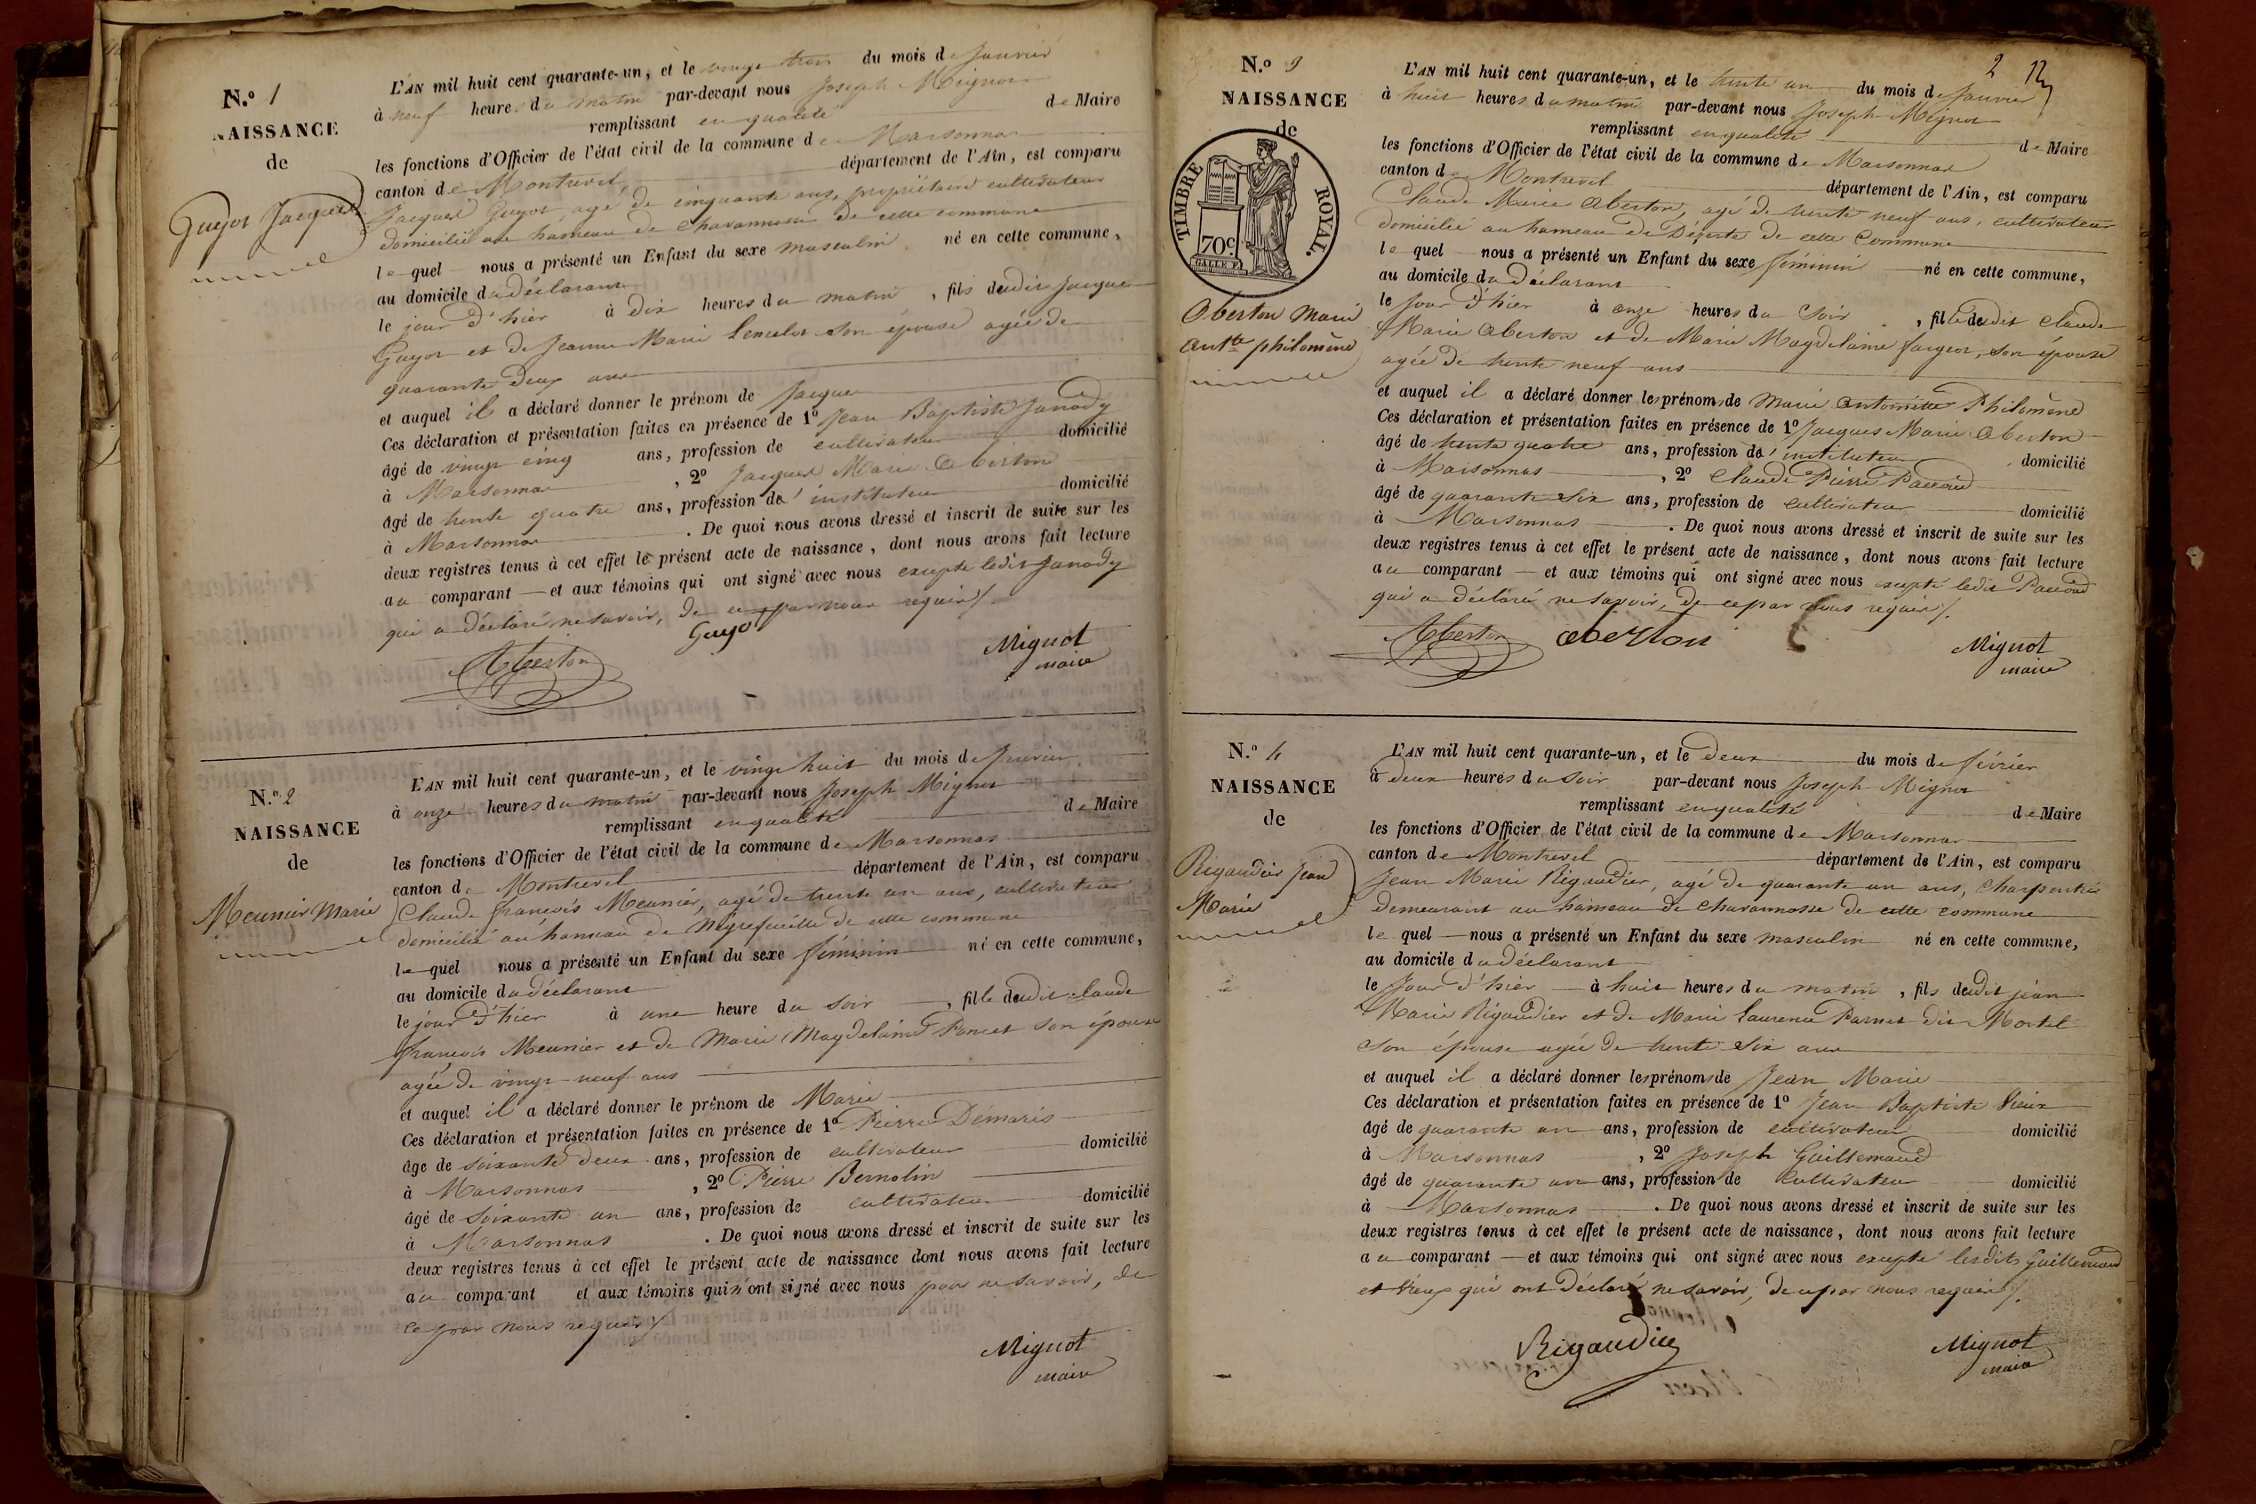 N.º 1
NAISSANCE
de
Guyot Jacques
L'AN mil huit cent quarante-un, et le vingt trois du mois de Janvier
à neuf heures du matin par-devant nous Joseph Mignot
remplissant en qualité de Maire
les fonctions d'Officier de l'état civil de la commune de Marsonnas
canton de Montrevel département de l'Ain, est comparu
Jacques Guyot, agé de cinquante ans, propriétaire cultivateur
domicilié au hameau de de cette commune
lequel nous a présenté un Enfant du sexe masculin né en cette commune,
au domicile du déclarant
le jour d'hier à dix heures du matin, fils dudit Jacques
Guyot et de Jeanne Marie son épouse agée de
quarante deux ans
et auquel il a déclaré donner le prénom de Jacques
Ces déclaration et présentation faites en présence de 1º Jean Baptiste Janody
âgé de vingt cinq ans, profession de cultivateur domicilié
à Marsonnas, 2º Jacques Marie Oberton
âgé de trente quatre ans, profession d'instituteur domicilié
à Marsonnas. De quoi nous avons dressé et inscrit de suite sur les
deux registres tenus à cet effet le présent acte de naissance, dont nous avons fait lecture
au comparant et aux témoins qui ont signé avec nous excepté ledit Janody
qui a déclaré ne savoir, de ce par nous requis
Oberton Guyot Mignot
maire
N.º 2
NAISSANCE
de
Meunier Marie
L'AN mil huit cent quarante-un, et le vingt huit du mois de janvier
à onze heures du matin par-devant nous Joseph Mignot
remplissant en qualité de Maire
les fonctions d'Officier de l'état civil de la commune de Marsonnas
canton de Montrevel département de l'Ain, est comparu
Claude françois Meunier, agé de trente un ans, cultivateur
domicilié au hameau de de cette commune
lequel nous a présenté un Enfant du sexe féminin né en cette commune,
au domicile du déclarant
le jour d'hier à une heure du soir, fille dudit claude
françois Meunier et de Marie Magdelaine Poncet son épouse
agée de vingt neuf ans
et auquel il a déclaré donner le prénom de Marie
Ces déclaration et présentation faites en présence de 1º Pierre Démaris
âgé de soixante deux ans, profession de cultivateur domicilié
à Marsonnas, 2º Pierre Bernolin
âgé de soixante un ans, profession de cultivateur domicilié
à Marsonnas. De quoi nous avons dressé et inscrit de suite sur les
deux registres tenus à cet effet le présent acte de naissance dont nous avons fait lecture
au comparant et aux témoins qui n'ont signé avec nous pour ne savoir, de
ce par nous requis
Mignot
maire
2
N.º 3
NAISSANCE
de
TIMBRE ROYAL.
70 c.
Oberton Marie
Antte philomène
L'AN mil huit cent quarante-un, et le trente un du mois de Janvier
à huit heures du matin par-devant nous Joseph Mignot
remplissant en qualité de Maire
les fonctions d'Officier de l'état civil de la commune de Marsonnas
canton de Montrevel département de l'Ain, est comparu
Claude Marie Oberton, agé de trente neuf ans, cultivateur
domicilié au hameau de de cette Commune
lequel nous a présenté un Enfant du sexe féminin né en cette commune,
au domicile du déclarant
le Jour d'hier à onze heures du soir, fille dudit Claude
Marie Oberton et de Marie Magdelaine fargeot, son épouse
agée de trente neuf ans
et auquel il a déclaré donner les prénoms de Marie Antoinette Philomène
Ces déclaration et présentation faites en présence de 1º Jacques Marie Oberton
âgé de trente quatre ans, profession d'instituteur domicilié
à Marsonnas, 2º Claude Pierre Paccoud
âgé de quarante six ans, profession de cultivateur domicilié
à Marsonnas. De quoi nous avons dressé et inscrit de suite sur les
deux registres tenus à cet effet le présent acte de naissance, dont nous avons fait lecture
au comparant et aux témoins qui ont signé avec nous excepté ledit Paccoud
qui a déclaré ne savoir, de ce par nous requis
Oberton oberton Mignot
maire
N.º 4
NAISSANCE
de
Rigaudier Jean
Marie
L'AN mil huit cent quarante-un, et le deux du mois de février
à deux heures du soir par-devant nous Joseph Mignot
remplissant en qualité de Maire
les fonctions d'Officier de l'état civil de la commune de Marsonnas
canton de Montrevel département de l'Ain, est comparu
Jean Marie Rigaudier, agé de quarante un ans, Charpentier
demeurant au hameau de Chavannosse de cette commune
lequel nous a présenté un Enfant du sexe masculin né en cette commune,
au domicile du déclarant
le Jour d'hier à huit heures du matin, fils dudit jean
Marie Rigaudier et de Marie Laurence Parnet dit Mortel
son épouse agée de trente six ans
et auquel il a déclaré donner les prénoms de Jean Marie
Ces déclaration et présentation faites en présence de 1º Jean Baptiste Vieux
âgé de quarante un ans, profession de cultivateur domicilié
à Marsonnas, 2º Joseph Guillemaud
âgé de quarante un ans, profession de Cultivateur domicilié
à Marsonnas. De quoi nous avons dressé et inscrit de suite sur les
deux registres tenus à cet effet le présent acte de naissance, dont nous avons fait lecture
au comparant et aux témoins qui ont signé avec nous excepté lesdits Guillemaud
et Vieux qui ont déclaré ne savoir, de ce par nous requis
Rigaudier Mignot
maire